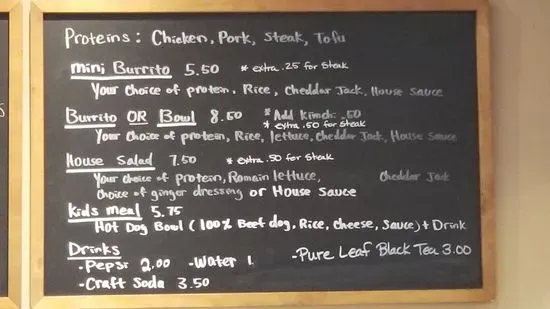 Proteins: Chicken, Pork, Steak, Tofu
mini Burrito 5.50 * extra .25 for steak
Your choice of protein, Rice, Cheddar Jack, House Sauce
Burrito OR Bowl 8.50 * Add Kimchi .50
* extra .50 for steak
Your choice of protein, Rice, lettuce, Cheddar Jack, House Sauce
House Salad 7.50 * extra .50 for steak
Your choice of protein, Romain lettuce, Cheddar Jack
choice of ginger dressing or House Sauce
kids meal 5.75
Hot Dog Bowl (100% Beef dog, Rice, cheese, Sauce) + Drink
Drinks
-Pepsi 2.00 -Water 1. -Pure Leaf Black Tea 3.00
-Craft Soda 3.50